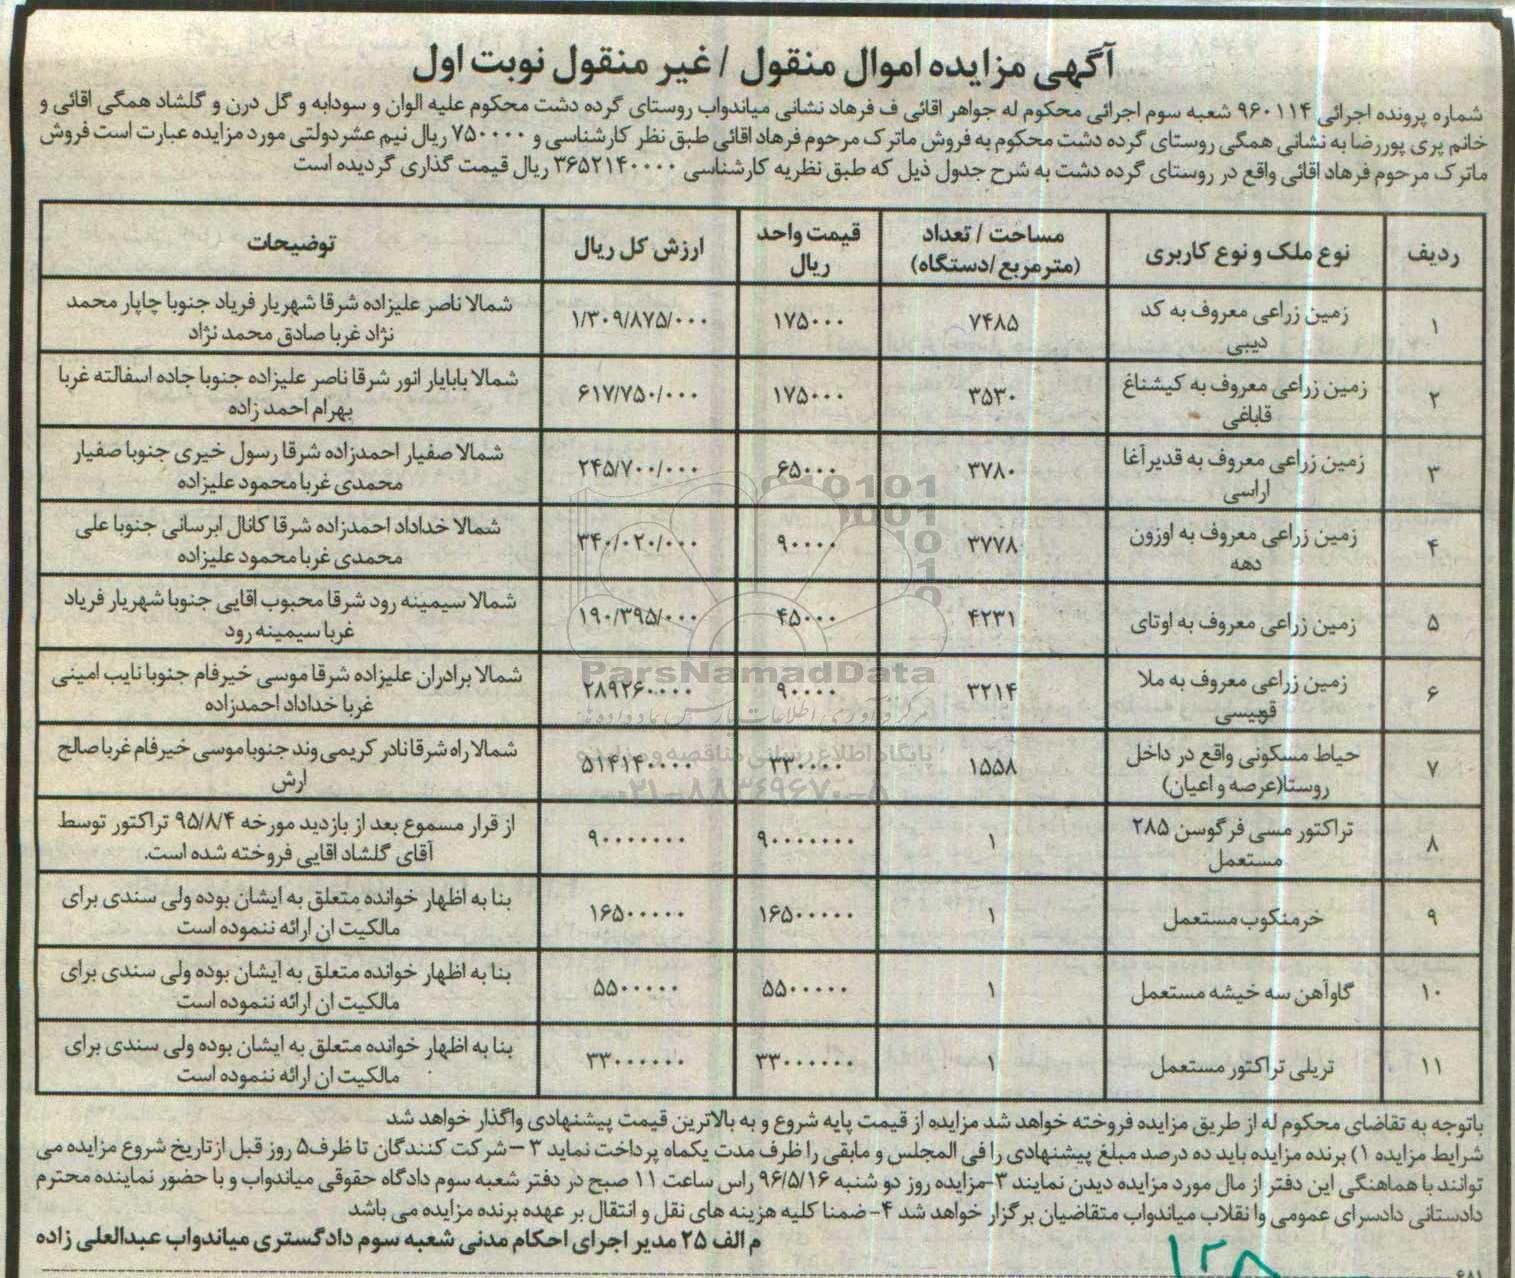 آگهی مزایده اموال منقول / غیر منقول نوبت اول
شماره پرونده اجرائی ۹۶۰۱۱۴ شعبه سوم اجرائی محکوم له جواهر اقائی ف فرهاد نشانی میاندواب روستای گرده دشت محکوم علیه الوان و سودابه و گل درن و گلشاد همگی اقائی و
خانم پری پوررضا به نشانی همگی روستای گرده دشت محکوم به فروش ماترک مرحوم فرهاد اقائی طبق نظر کارشناسی و ۷۵۰۰۰۰ ریال نیم عشردولتی مورد مزایده عبارت است فروش
ماترک مرحوم فرهاد اقائی واقع در روستای گرده دشت به شرح جدول ذیل که طبق نظریه کارشناسی ۳۶۵۲۱۴۰۰۰۰ ریال قیمت گذاری گردیده است
ردیف نوع ملک و نوع کاربری مساحت / تعداد (مترمربع/دستگاه) قیمت واحد ریال ارزش کل ریال توضیحات
۱ زمین زراعی معروف به کد دیبی ۷۴۸۵ ۱۷۵۰۰۰ ۱/۳۰۹/۸۷۵/۰۰۰ شمالا ناصر علیزاده شرقا شهریار فریاد جنوبا چاپار محمد نژاد غربا صادق محمد نژاد
۲ زمین زراعی معروف به کیشناغ قاباغی ۳۵۳۰ ۱۷۵۰۰۰ ۶۱۷/۷۵۰/۰۰۰ شمالا بابایار انور شرقا ناصر علیزاده جنوبا جاده اسفالته غربا بهرام احمد زاده
۳ زمین زراعی معروف به قدیرآغا اراسی ۳۷۸۰ ۶۵۰۰۰ ۲۴۵/۷۰۰/۰۰۰ شمالا صفیار احمدزاده شرقا رسول خیری جنوبا صفیار محمدی غربا محمود علیزاده
۴ زمین زراعی معروف به اوزون دهه ۳۷۷۸ ۹۰۰۰۰ ۳۴۰/۰۲۰/۰۰۰ شمالا خداداد احمدزاده شرقا کانال ابرسانی جنوبا علی محمدی غربا محمود علیزاده
۵ زمین زراعی معروف به اوتای ۴۲۳۱ ۴۵۰۰۰ ۱۹۰/۳۹۵/۰۰۰ شمالا سیمینه رود شرقا محبوب اقایی جنوبا شهریار فریاد غربا سیمینه رود
۶ زمین زراعی معروف به ملا قوییسی ۳۲۱۴ ۹۰۰۰۰ ۲۸۹۲۶۰۰۰۰ شمالا برادران علیزاده شرقا موسی خیرفام جنوبا نایب امینی غربا خداداد احمدزاده
۷ حیاط مسکونی واقع در داخل روستا(عرصه و اعیان) ۱۵۵۸ ۳۳۰۰۰۰ ۵۱۴۱۴۰۰۰۰ شمالا راه شرقا نادر کریمی وند جنوبا موسی خیرفام غربا صالح ارش
۸ تراکتور مسی فرگوسن ۲۸۵ مستعمل ۱ ۹۰۰۰۰۰۰۰ ۹۰۰۰۰۰۰۰ از قرار مسموع بعد از بازدید مورخه ۹۵/۸/۴ تراکتور توسط آقای گلشاد اقایی فروخته شده است.
۹ خرمنکوب مستعمل ۱ ۱۶۵۰۰۰۰۰ ۱۶۵۰۰۰۰۰ بنا به اظهار خوانده متعلق به ایشان بوده ولی سندی برای مالکیت ان ارائه ننموده است
۱۰ گاوآهن سه خیشه مستعمل ۱ ۵۵۰۰۰۰۰ ۵۵۰۰۰۰۰ بنا به اظهار خوانده متعلق به ایشان بوده ولی سندی برای مالکیت ان ارائه ننموده است
۱۱ تریلی تراکتور مستعمل ۱ ۳۳۰۰۰۰۰۰ ۳۳۰۰۰۰۰۰ بنا به اظهار خوانده متعلق به ایشان بوده ولی سندی برای مالکیت ان ارائه ننموده است
باتوجه به تقاضای محکوم له از طریق مزایده فروخته خواهد شد مزایده از قیمت پایه شروع و به بالاترین قیمت پیشنهادی واگذار خواهد شد
شرایط مزایده ۱) برنده مزایده باید ده درصد مبلغ پیشنهادی را فی المجلس و مابقی را ظرف مدت یکماه پرداخت نماید ۲ – شرکت کنندگان تا ظرف ۵ روز قبل ازتاریخ شروع مزایده می
توانند با هماهنگی این دفتر از مال مورد مزایده دیدن نمایند ۳-مزایده روز دو شنبه ۹۶/۵/۱۶ راس ساعت ۱۱ صبح در دفتر شعبه سوم دادگاه حقوقی میاندواب و با حضور نماینده محترم
دادستانی دادسرای عمومی وا نقلاب میاندواب متقاضیان برگزار خواهد شد ۴- ضمنا کلیه هزینه های نقل و انتقال بر عهده برنده مزایده می باشد
م الف ۲۵ مدیر اجرای احکام مدنی شعبه سوم دادگستری میاندواب عبدالعلی زاده
ParsNamadData
پایگاه اطلاع رسانی مناقصه و مزایده
۰۲۱-۸۸۳۴۹۶۷۰-۵